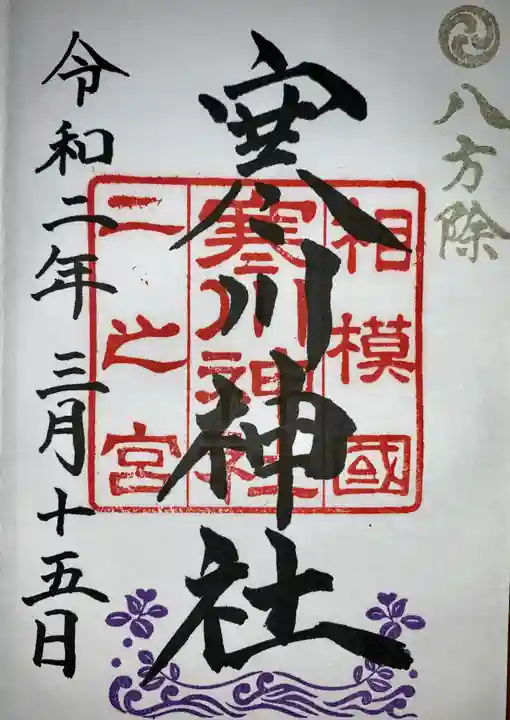 八方除
相模國
寒川神社
二之宮
寒川神社
令和二年三月十五日